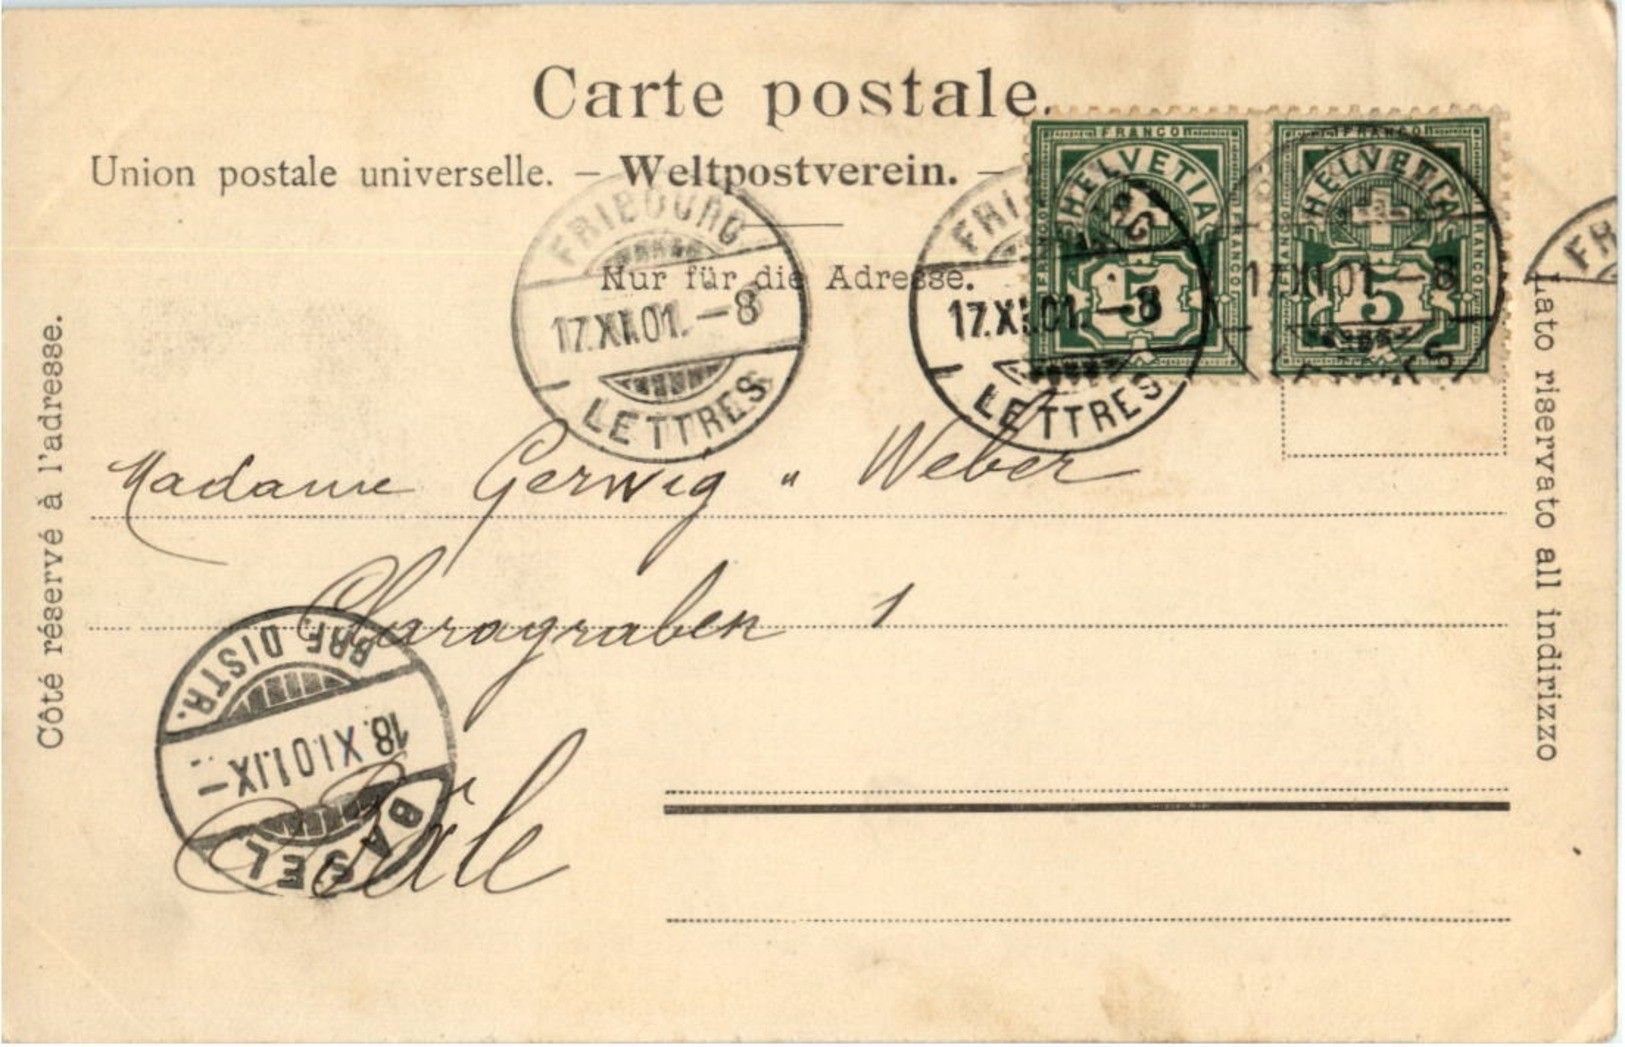 Carte postale.
Union postale universelle. – Weltpostverein. –
Nur für die Adresse.
Côté réservé à l'adresse.
Lato riservato all indirizzo
FRANCO
HELVETIA
FRANCO
FRANCO
5
FRANCO
HELVETIA
FRANCO
FRANCO
5
FRIBOURG
17.XI.01.–8
LETTRES
FRIBOURG
17.XI.01.–8
LETTRES
17.XI.01.–8
LETTRES
FRI
Madame Gerwig " Weber
Claragraben 1
Bâle
BASEL
18.XI.01.IX–
BRF. DISTR.